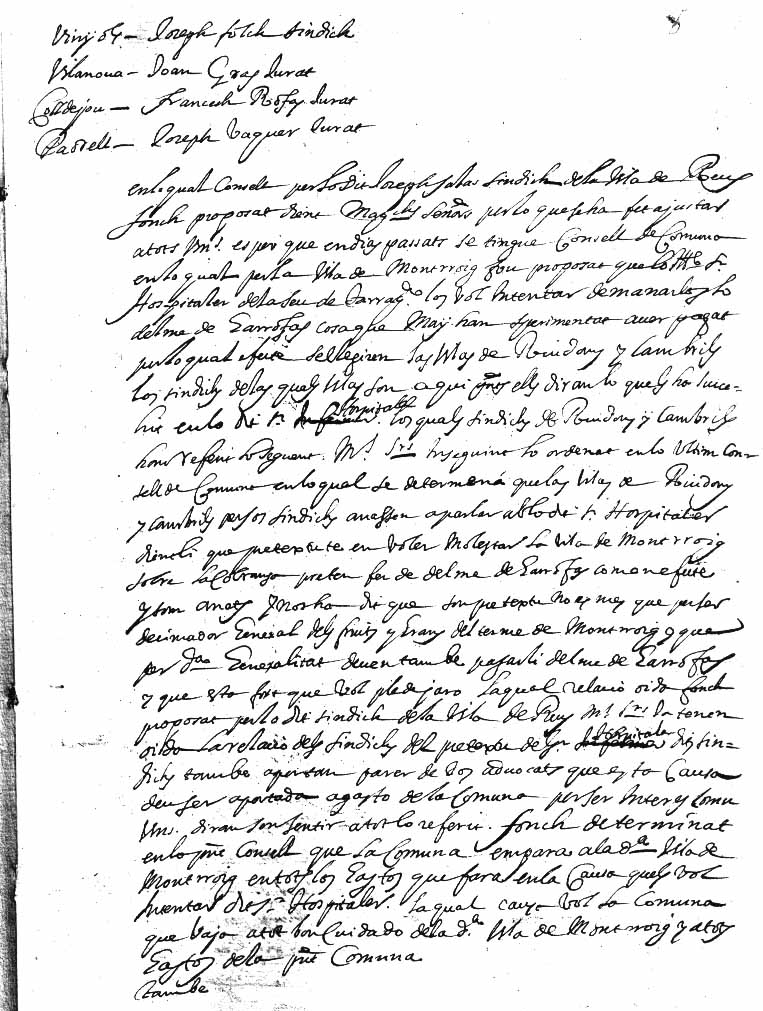 Vinyols – Joseph folch Sindich
Vilanova – Joan Gras Jurat
Colldejou – Francesch Rosses Jurat
Pratdell – Joseph Vaquer Jurat
8
en lo qual Consell per lo dit Joseph salas sindich de la Vila de Reus
fonch proposat dient Magchs señors per lo que se ha fet ajustar
a tots Vms. es per que en dias passats se tingue Consell de Comuna
en lo qual per la Vila de Montrroig fou proposat que lo Sr.
Hospitaler de la seu de Tarragna los vol Intentar demanarlos lo
delme de Garrofas cosa que May han sperimentat aver pagat
per lo qual efecte se elegiren las Vilas de Riudoms y Cambrils
los sindichs de las quals Vilas son aqui pnts ells diran lo quels ha succe-
hit en lo dit Sr. Hospitaler. los quals sindichs de Riudoms y Cambrils
han referit lo seguent. Ms. Srs. Inseguint lo ordenat en lo Ultim Con-
sell de Comuna en lo qual se determená que las Vilas de Riudoms
y Cambrils per sos sindichs anassen a parlar ab lo dit Sr. Hospitaler
dientli que pretexte te en voler Molestar la Vila de Montrroig
sobre la Cobransa preten fer de delme de Garrofas com en efecte
y som anats y nos ha dit que son pretexte no es mes que per ser
decimador General dels fruits y Grans del terme de Montrroig y que
per dita Generalitat deuen tambe pagarli delme de Garrofas
y que esta fort que vol pledejaro. laqual relacio oida fonch
proposat per lo dit sindich de la Vila de Reus Ms. Srs. Ja tenen
oida la relacio dels sindichs del pretexte del Sr. Hospitaler dits sin-
dichs tambe aportan parer de dos advocats que esta Causa
deu ser aportada a gasto de la Comuna per ser Interes Comu
Vms. diran son sentir a tot lo referit. fonch determinat
en lo pnt Consell que la Comuna empara a la da. Vila de
Montrroig en tots los Gastos que fara en la Causa quels vol
Intentar dit Sr. Hospitaler. laqual causa vol la Comuna
que vaja a tot bon Cuidado de la da. Vila de Montrroig y a tots
Gastos de la pnt Comuna
tambe